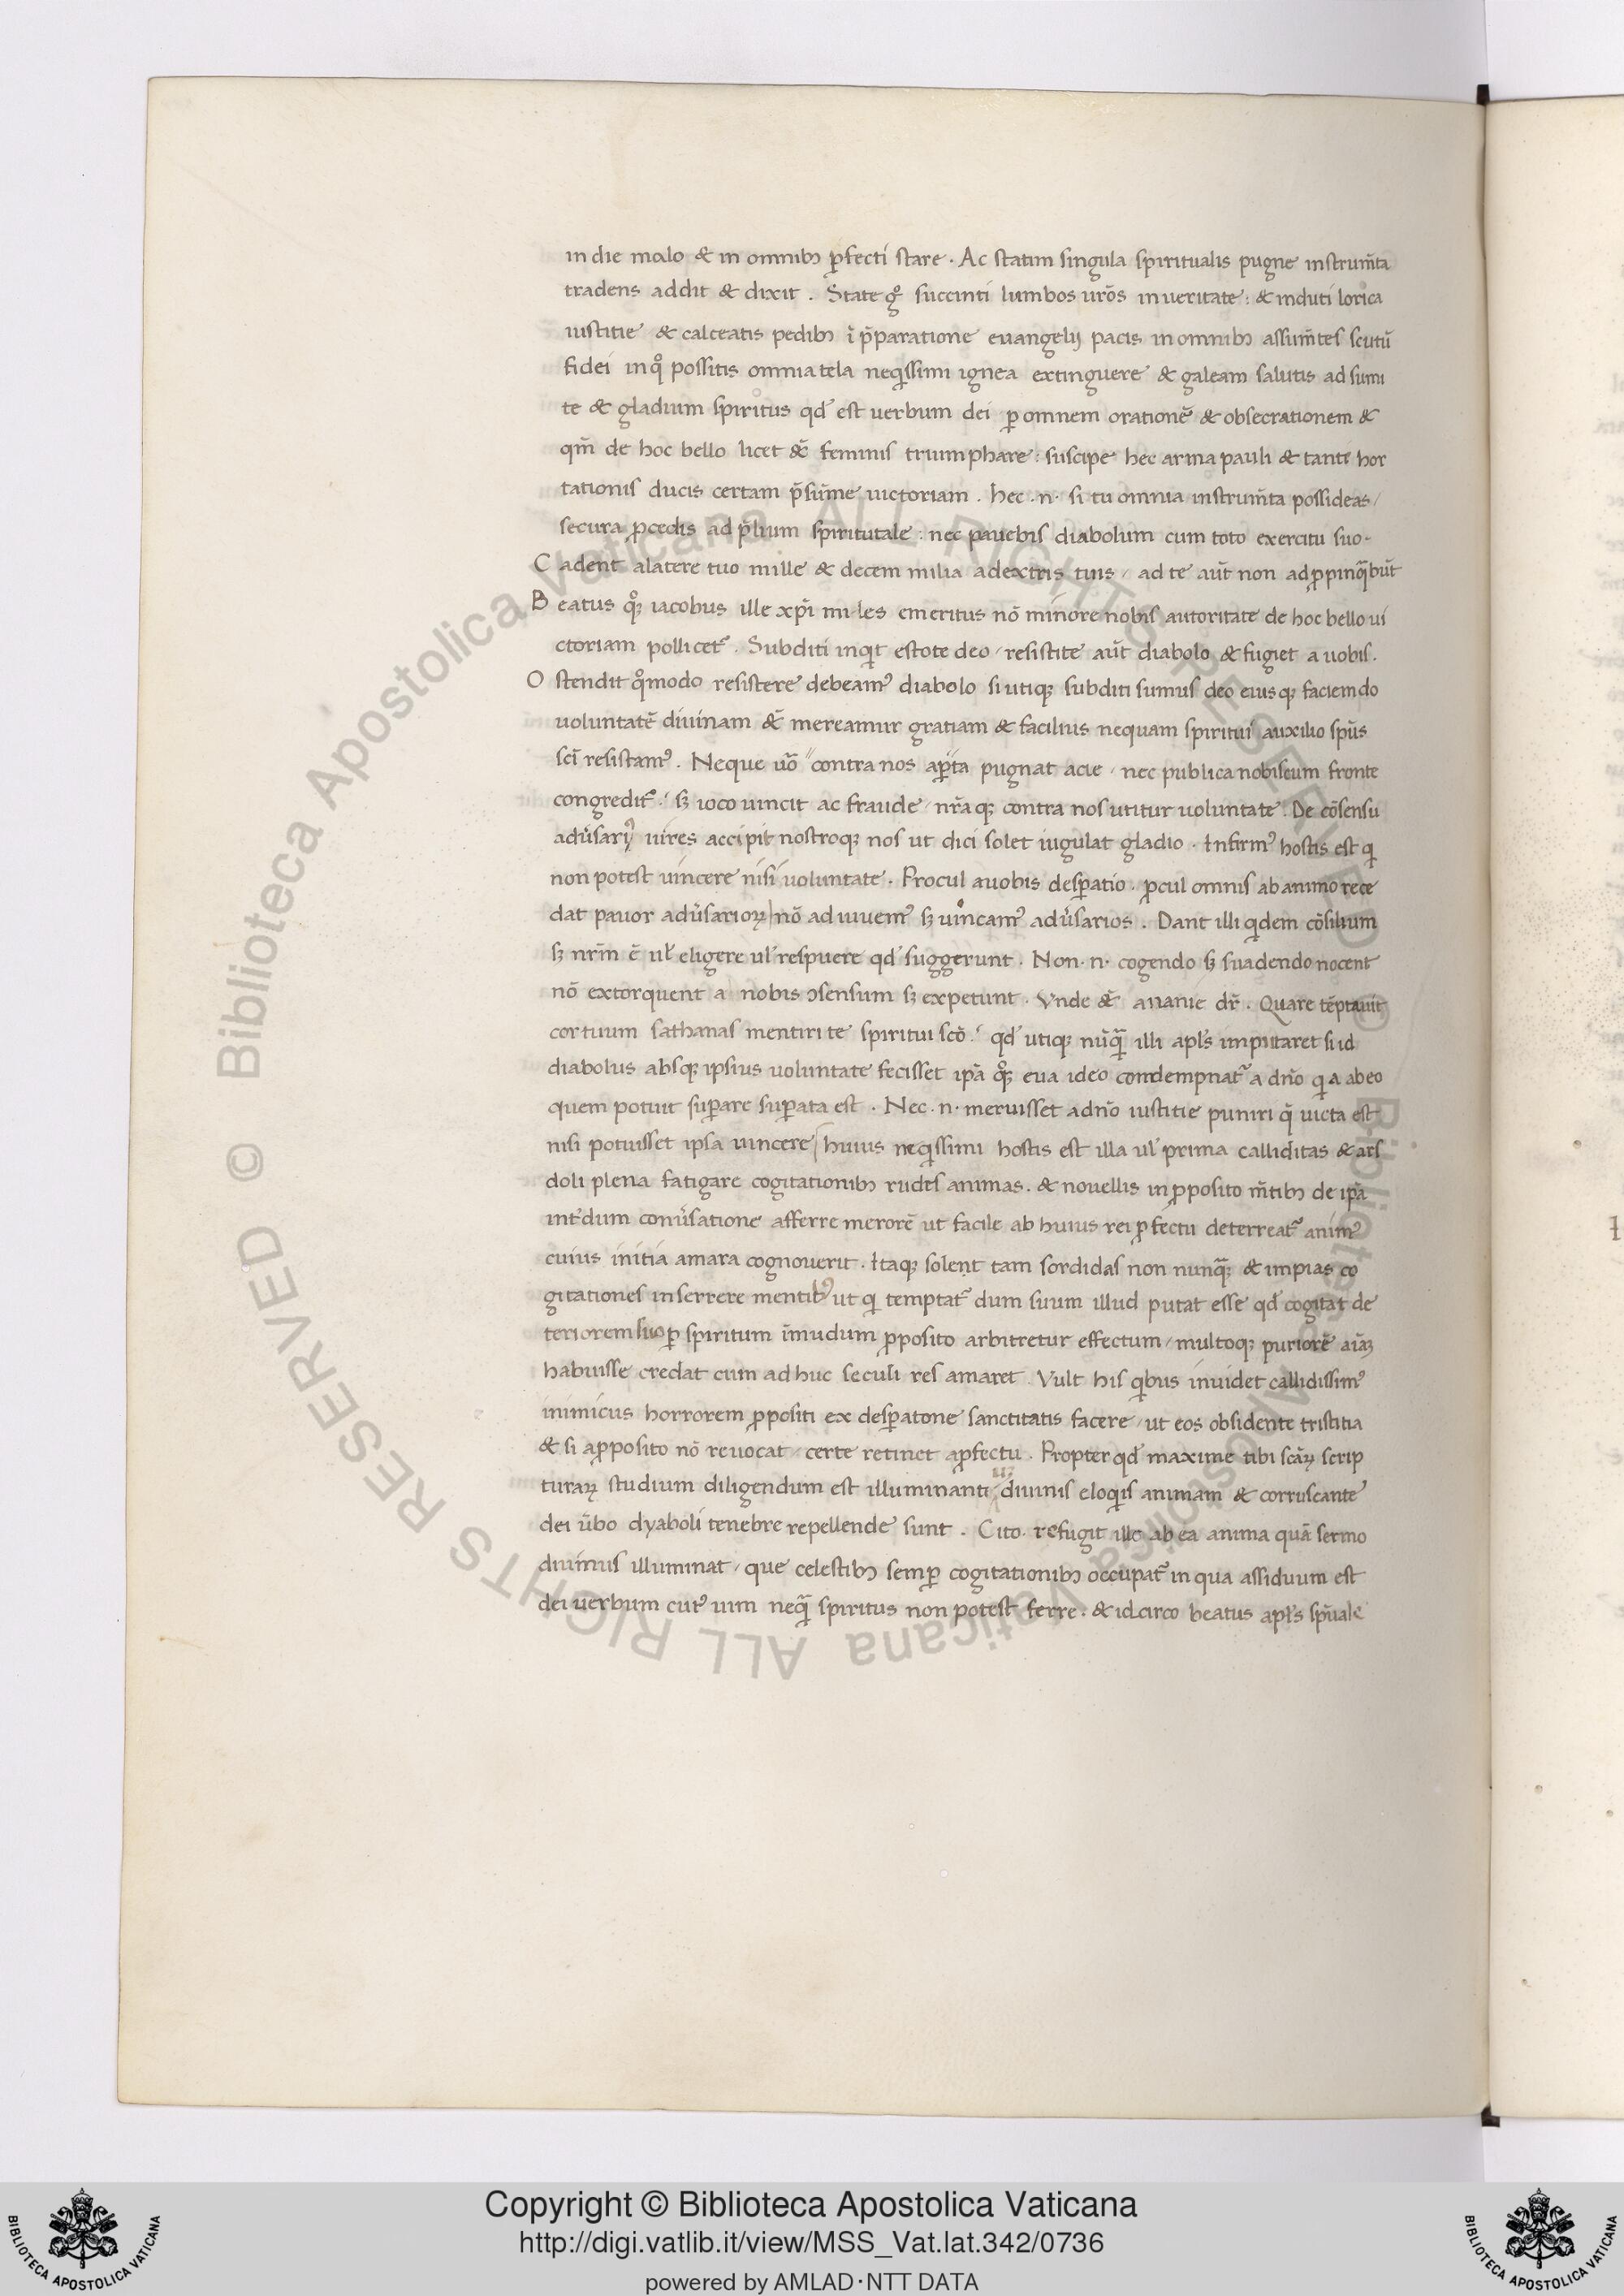 in die malo & in omnibꝫ ꝑfecti stare. Ac statim singula spiritualis pugne instrum̄ta
tradens addit & dixit. State gͦ succinti lumbos ur̄os in ueritate: & induti lorica
iustitie & calceatis pedibꝫ ī p̄paratione euangelij pacis in omnibꝫ assum̄tes scutū
fidei in qͦ possitis omnia tela neqissimi ignea extinguere & galeam salutis ad sumi
te & gladium spiritus qd' est uerbum dei ꝑ omnem orationē & obsecrationem &
qm̄ de hoc bello licet &̄ feminis triumphare: suscipe hec arma pauli & tanti hor
tationis ducis certam p̄sūme uictoriam. hec .n. si tu omnia instrum̄ta possideas/
secura ꝓcedis ad p̄lium spiritutale: nec pauebis diabolum cum toto exercitu suo.
Cadent alatere tuo mille & decem milia adextris tuis / ad te aūt non adꝓpinqͣbūt
Beatus qͦꝫ iacobus ille xp̄i mi les emeritus nō minore nobis autoritate de hoc bello ui
ctoriam pollicet᷑. Subditi inqit estote deo / resistite aūt diabolo & fugiet a uobis.
Ostendit qͦmodo resistere debeamꝰ diabolo si utiqꝫ subditi sumus deo eiusqꝫ faciemdo
uoluntatē diuinam &̄ mereamur gratiam & facilius nequam spiritui auxilio sp̄us
sc̄i resistamꝰ. Neque uō " contra nos aꝑta pugnat acie / nec publica nobiscum fronte
congredit᷑. sꝫ ioco uincit ac fraude / nr̄aqꝫ contra nos utitur uoluntate. De cōsensu
adūsarijꝰ uires accipit nostroqꝫ nos ut dici solet iugulat gladio. Infirmꝰ hostis est qi
non potest uincere nisi uoluntate. Procul auobis desꝑatio. ꝓcul omnis ab animo rece
dat pauor adūsarioꝝ| nō ad iuuemꝰ sꝫ uincamꝰ adūsarios. Dant illi qidem cōsilium
sꝫ nr̄m ē ul' eligere ul' respuere qd' suggerunt. Non .n. cogendo sꝫ suadendo nocent
nō extorquent a nobis ɔsensum sꝫ expetunt. Vnde &̄ ananie dr̄. Quare tēptauit
cor tuum sathanas mentiri te spiritui scō. qd' utiqꝫ nūqͣ illi apl's imputaret si id
diabolus absqꝫ ipsius uoluntate fecisset ip̄a qͦꝫ eua ideo comdempnat᷑ a dn̄o qi a abeo
quem potuit suꝑare suꝑata est. Nec .n. meruisset adn̄o iustitie puniri q̄ uicta est
nisi potuisset ipsa uincere| huius neqissimi hostis est illa ul' prima calliditas & ars
doli plena fatigare cogitationibꝫ rudes animas. & nouellis in ꝓposito m̄tibꝫ de ip̄a
int᷑dum conūsatione afferre merorē ut facile ab huius rei ꝓfectu deterreat᷑ animꝰ
cuius initia amara cognouerit. Itaqꝫ solent tam sordidas non nunqͣꝫ & impias co
gitationes inserrere mentibꝰ ut qi temptat᷑ dum suum illud putat esse qd' cogitat de
teriorem suo ꝑ spiritum īmudum ꝓposito arbitretur effectum / multoqꝫ puriorē aīaꝫ
habuisse credat cum ad huc seculi res amaret. Vult his qibus inuidet callidissimꝰ
inimicus horrorem ꝓpositi ex desꝑatone sanctitatis facere / ut eos obsidente tristitia
& si aꝓposito nō reuocat / certe retinet aꝓfectu. Propter qd' maxime tibi scāꝝ scrip
turaꝝ studium diligendum est illuminanti diuinis eloqis animam & corruscante
dei ūbo dyaboli tenebre repellende sunt. Cito. refugit ille ab ea anima quā sermo
diuinus illuminat / que celestibꝫ semꝑ cogitationibꝫ occupat᷑ in qua assiduum est
dei uerbum cuiꝰ uim neqͣ spiritus non potest ferre. & idcirco beatus apl's sp̄uale
Copyright © Biblioteca Apostolica Vaticana
http://digi.vatlib.it/view/MSS_Vat.lat.342/0736
powered by AMLAD·NTT DATA
BIBLIOTECA APOSTOLICA VATICANA
BIBLIOTECA APOSTOLICA VATICANA
© Biblioteca Apostolica Vaticana ALL RIGHTS RESERVED © Biblioteca Apostolica Vaticana ALL RIGHTS RESERVED